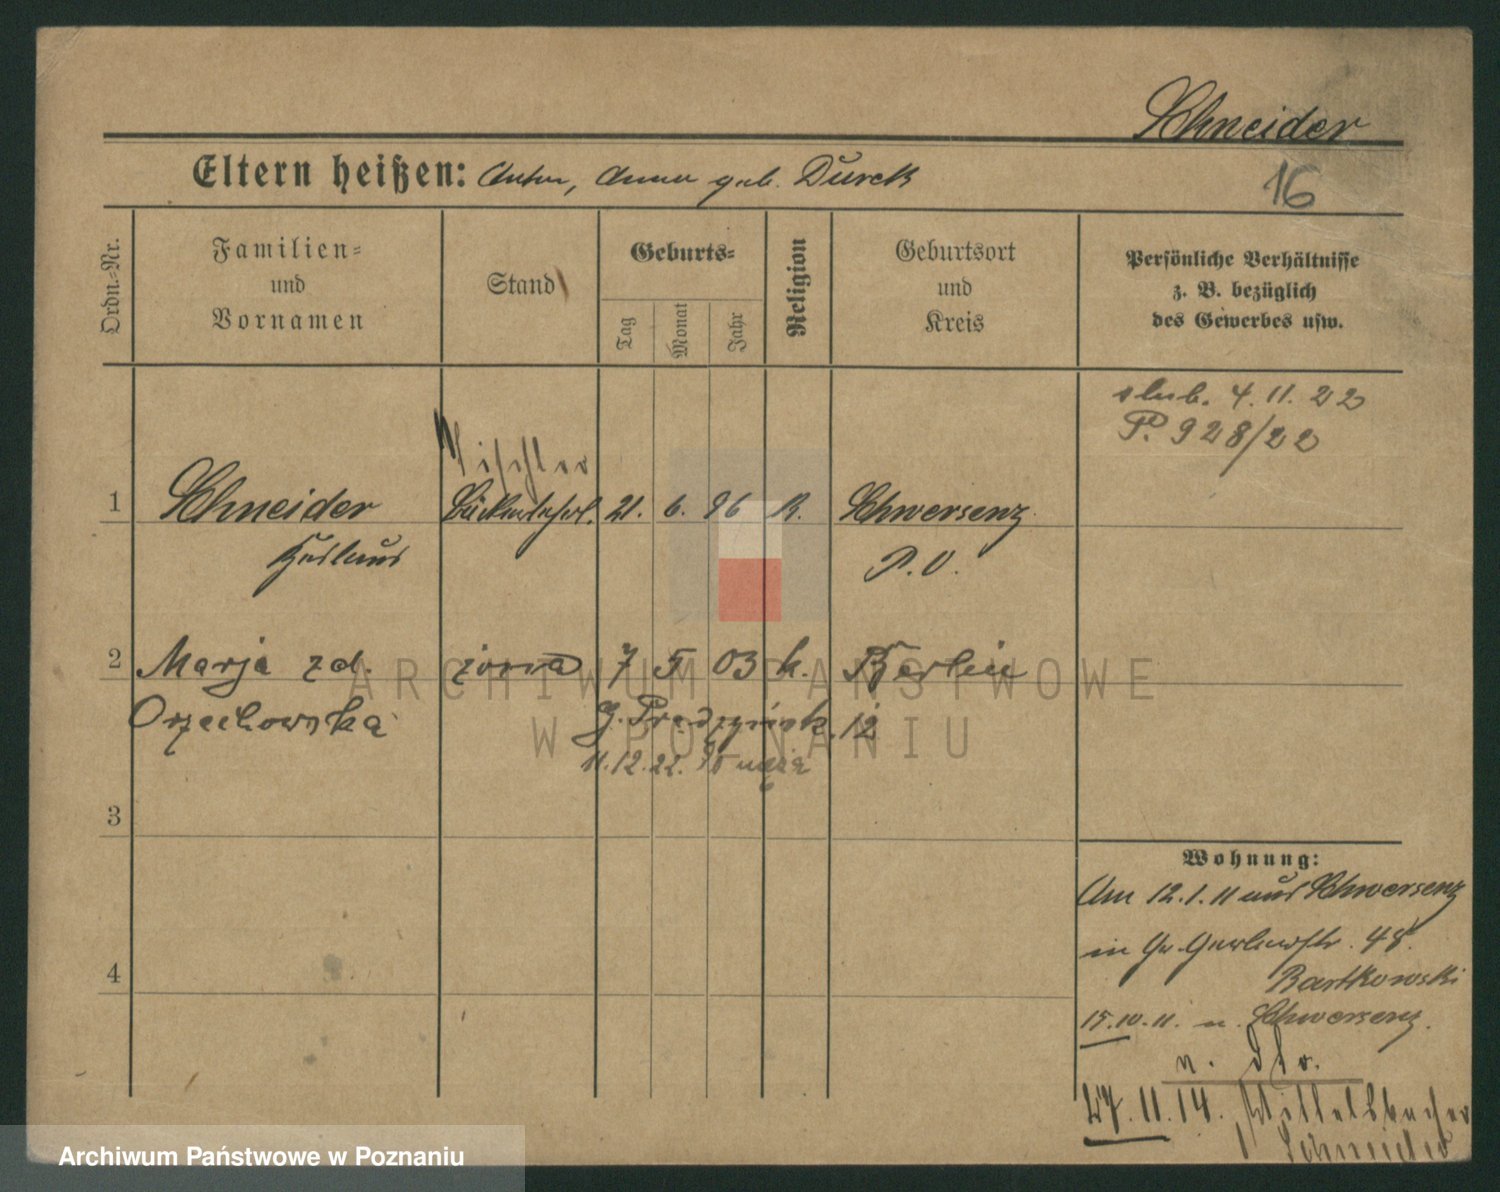 Schneider
Eltern heißen: Anton, Anna geb. Durck
16
Ordn.-Nr.
Familien-
und
Vornamen
Stand
Geburts-
Tag
Monat
Jahr
Religion
Geburtsort
und
Kreis
Persönliche Verhältnisse
z. B. bezüglich
des Gewerbes usw.
ślub. 4. 11. 22
P. 928/22
Tischler
1 Schneider 21. 6. 96 K. Schwersenz
P. O.
2 Marja zd. żona 7 5 03 k. Berlin
Orzechowska
11. 12. 22.
3
4
Wohnung:
Am 12. 1. 11 aus Schwersenz
in Gr. Gerberstr. 48.
Bartkowski
15. 10. 11. n. Schwersenz.
v. dto.
27. 11. 14. Wittelsbacher
Schneider
ARCHIWUM PAŃSTWOWE
W POZNANIU
Archiwum Państwowe w Poznaniu